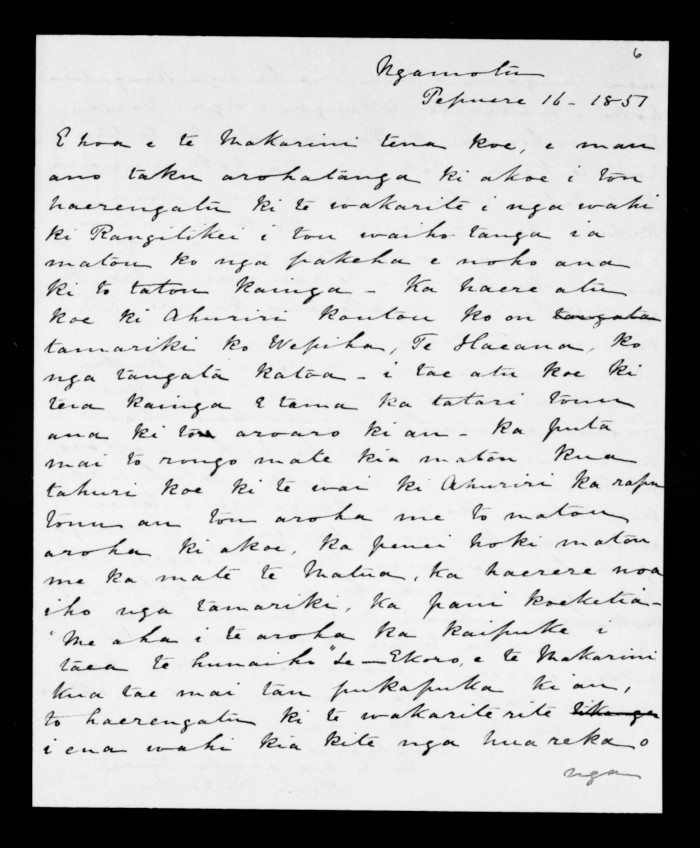 6
Ngamotu
Pepuere 16 - 1851
E hoa e te Makarini tena koe, e mau
ano taku arohatanga ki akoe i ton
haerengatu ki te wakarite i nga wahi
ki Rangitikei i tou waiho tanga ia
matou ko nga pakeha e noho ana
ki to tatou kainga - Ka haere atu
koe ki Ahuriri koutou ko on tangata
tamariki ko Wepiha, Te Haeana, ko
nga tangata katoa - i tae atu koe ki
tena kainga E tama ka tatari tonu
ana ki tou aroaro ki au - ka puta
mai to rongo mate kia matou kua
tahuri koe ki te wai ki Ahuriri ka rapu
tonu au tou aroha me to matou
aroha ki akoe, ka penei hoki matou
me ka mate te Matua, ka haerere noa
iho nga tamariki, ka pani koeketia -
"Me aha i te aroha ka kaipuke i
taea te hunaiho" &c - Ekoro, e te Makarini
kua tae mai tau pukapuka ki au,
to haerengatu ki te wakariterite tikanga
i ena wahi kia kite nga hua reka o
nga